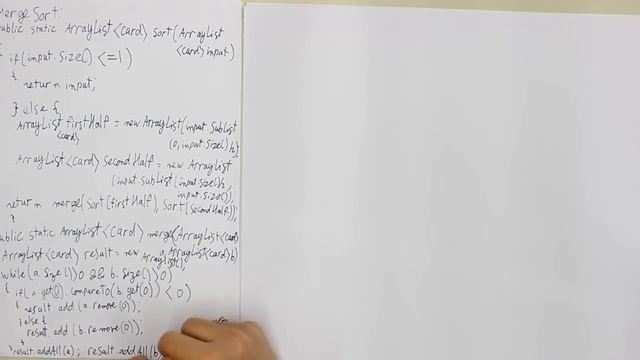 Merge Sort:
public static ArrayList<card> sort(ArrayList
<card> input)
{ if(input.size() <=1)
{
return input;
} else {
ArrayList<card> firstHalf = new ArrayList(input.subList
(0, input.size()/2);
ArrayList<card> secondHalf = new ArrayList
(input.subList(input.size()/2,
input.size());
return merge(sort(firstHalf), sort(secondHalf));
}
public static ArrayList<card> merge(ArrayList<card>
a, ArrayList<card> b)
ArrayList<card> result = new ArrayList();
while(a.size()>0 && b.size()>0)
{ if(a.get(0).compareTo(b.get(0)) < 0)
{ result.add(a.remove(0));
} else {
result.add(b.remove(0));
}
} result.addAll(a); result.addAll(b)